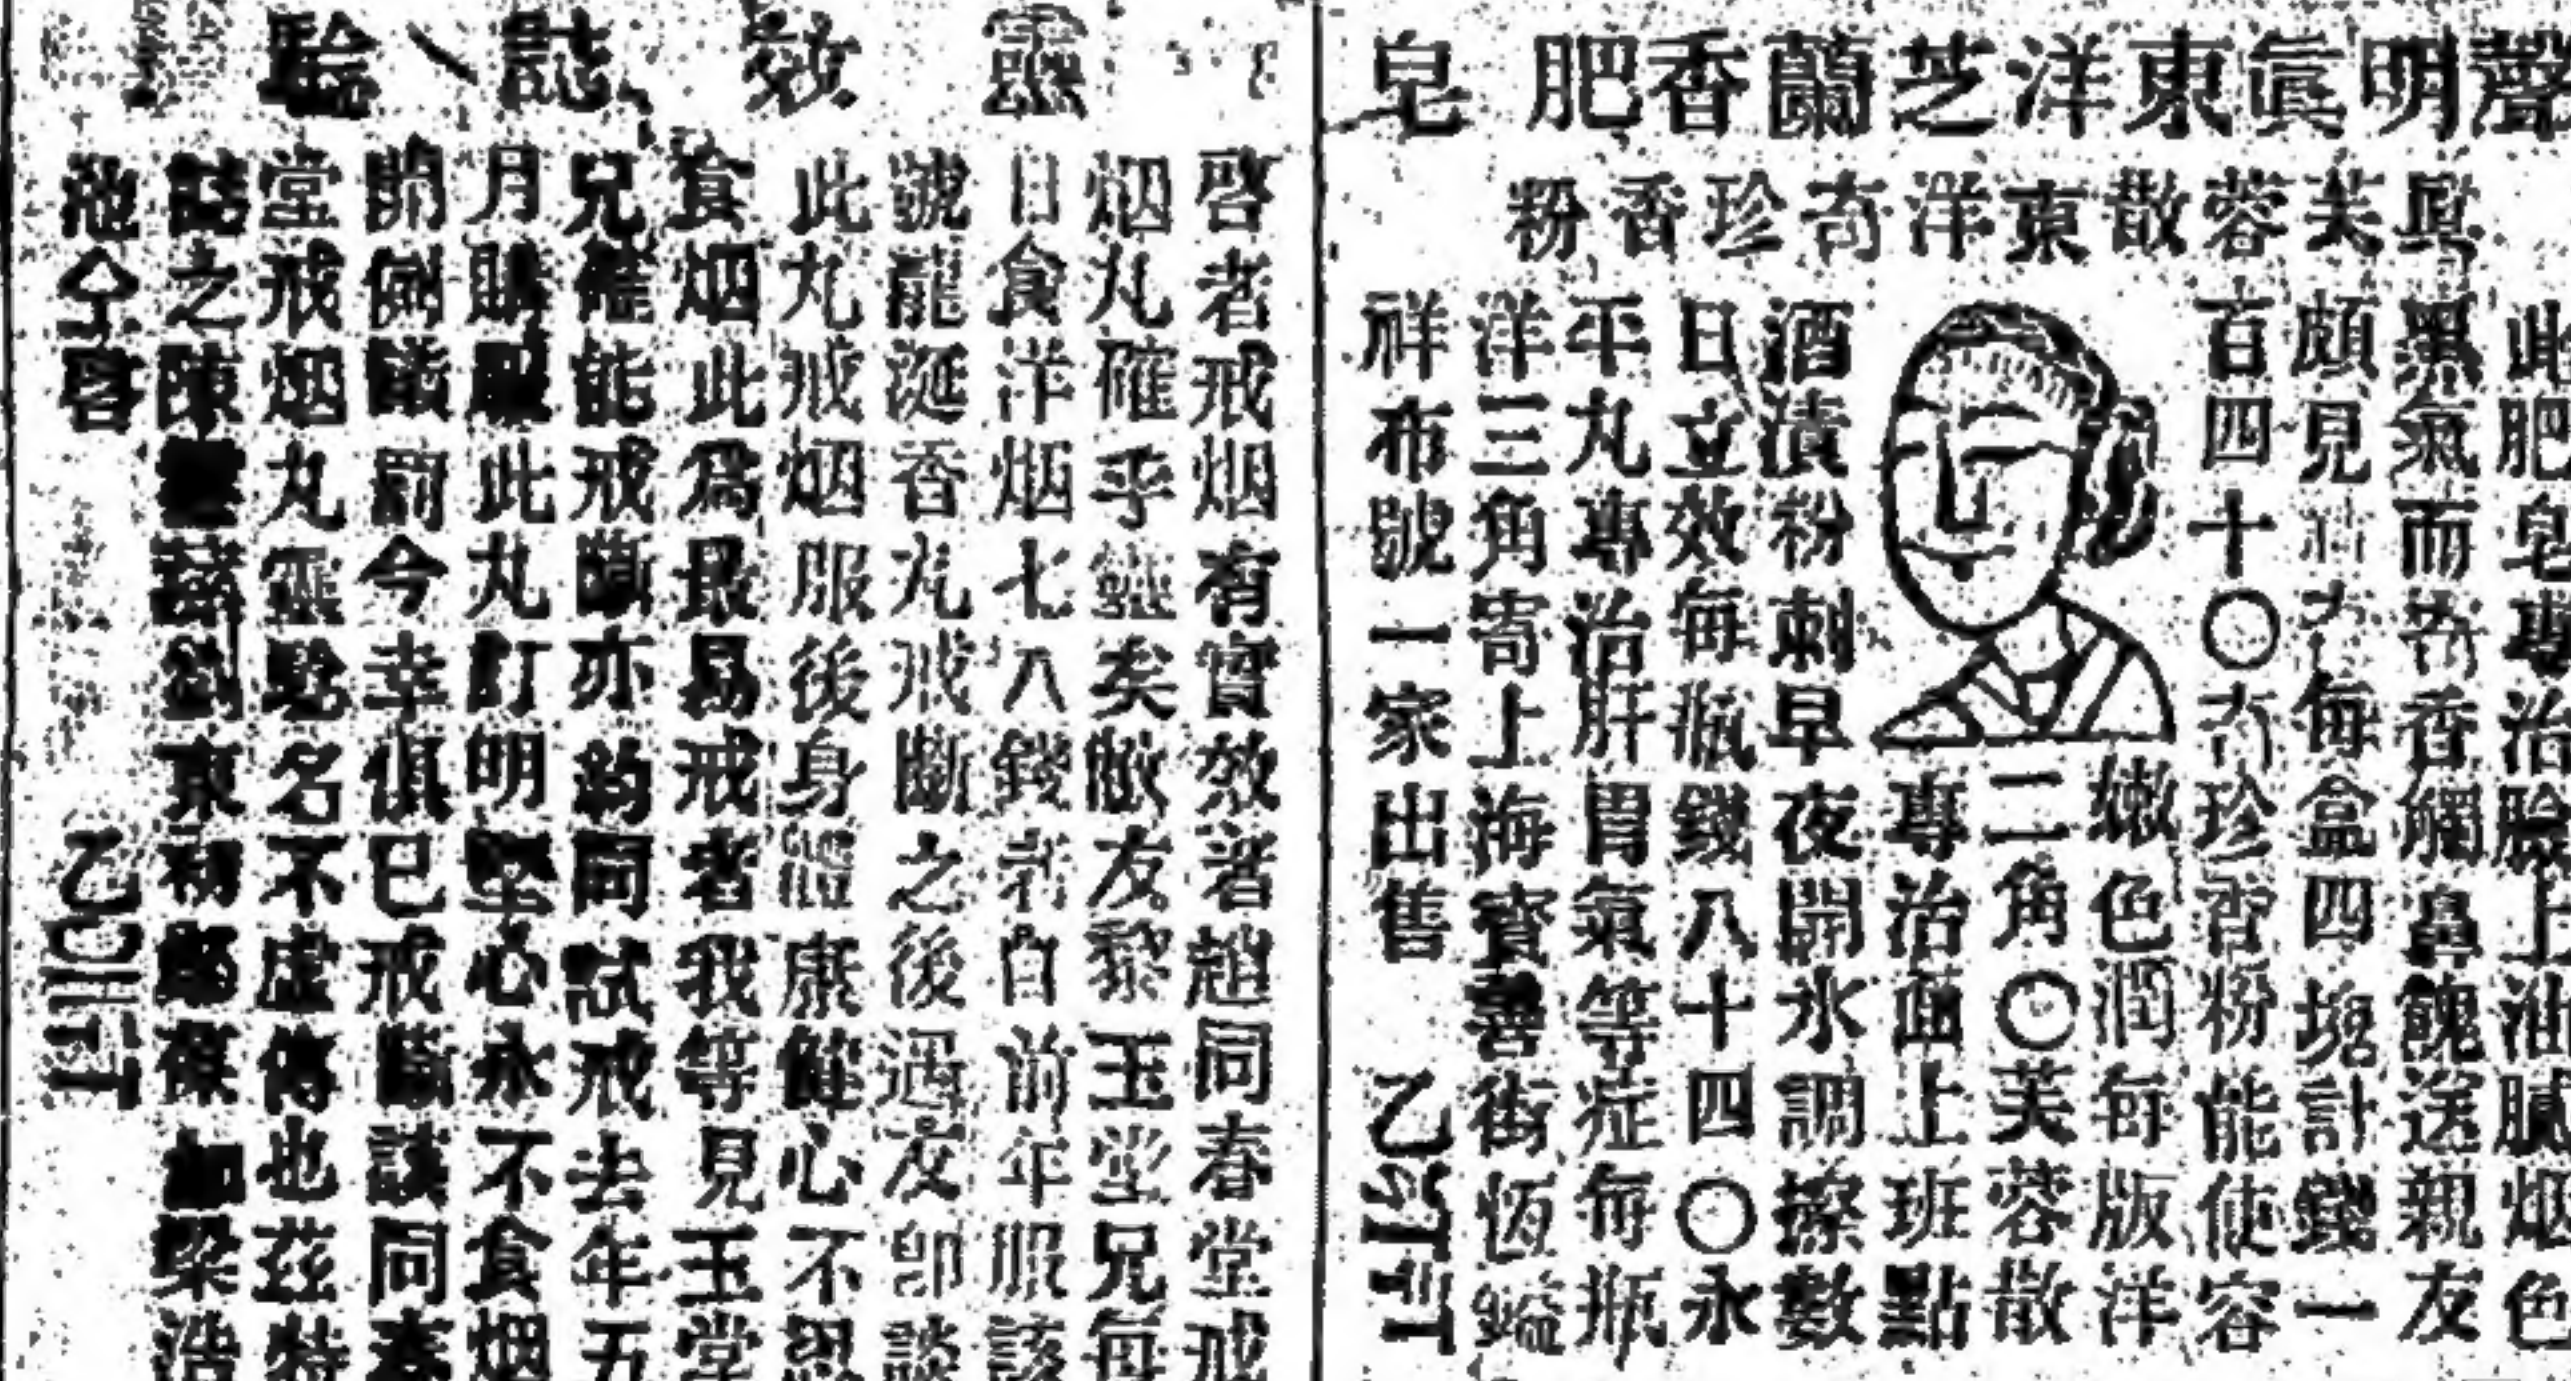 聲明眞東洋芝蘭香肥皂
鳥芙蓉散東洋奇珍香粉
此肥皂專治臉上油膩烟色
黑氣而奇香觸鼻餽送親友
頗見每盒四塊計錢一
百四十〇奇珍香粉能使容
嫩色潤每版洋
二角〇芙蓉散
專治面上班點
酒渍粉刺早夜開水調擦數
日立效每瓶錢八十四〇永
平丸專治肝胃氣等症每瓶
洋三角寄上海寶善街恆鎰
祥布號一家出售
靈效誌驗
啓者戒烟有實效者趙同春堂戒
烟丸確乎矣敝友黎玉堂兄每
日食洋烟七八錢者自前年服該
號龍涎香丸戒斷之後遇友卽談
此丸戒烟服後身體康健心不思
食烟此爲最易戒者我等見玉堂
兄旣能戒斷亦約同試戒去年五
月購服此丸訂明堅心永不食烟
開倒罰今幸俱已戒斷該同春
堂戒烟丸靈驗名不虛傳也茲特
誌之陳劉東初梁浩
池仝啓